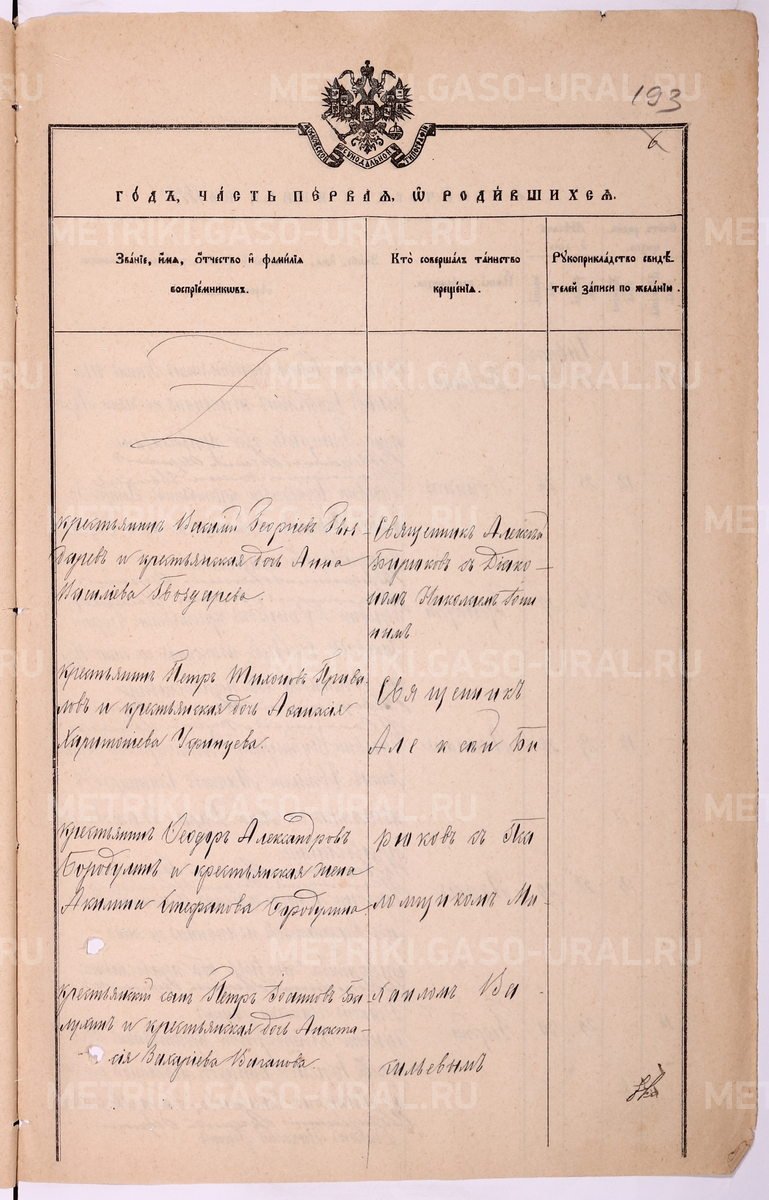 193
6
МОСКОВСКОЙ СУНОДАЛЬНОЙ ТИПОГРАФІИ
ГОДЪ, ЧАСТЬ ПЕРВАЯ, Ѡ РОДИВШИХСЯ.
Званіе, имя, отчество и фамилія
воспріемниковъ.
Кто совершалъ таинство
крещенія.
Рукоприкладство свидѣ
телей записи по желанію.
крестьянинъ Василій Георгіевъ Гвоз
даревъ и крестьянская дочь Анна
Василіева Гвоздарева.
Священникъ Алексѣй
Бирюковъ съ Діако-
номъ Николаемъ
нымъ
крестьянинъ Петръ Тихоновъ Прива
ловъ и крестьянская дочь Аѳанасія
Харитоніева Уфинцева.
Священникъ
Алексѣй Би
крестьянинъ Ѳеодоръ Александровъ
Бородулинъ и крестьянская жена
Акилина Стефанова Бородулина.
рюковъ съ Пса
ломщикомъ Ми-
крестьянскій сынъ Петръ Іоанновъ Ба
лухинъ и крестьянская дочь Анаста-
сія Ваганова.
хаиломъ Ва-
сильевымъ
METRIKI.GASO-URAL.RU